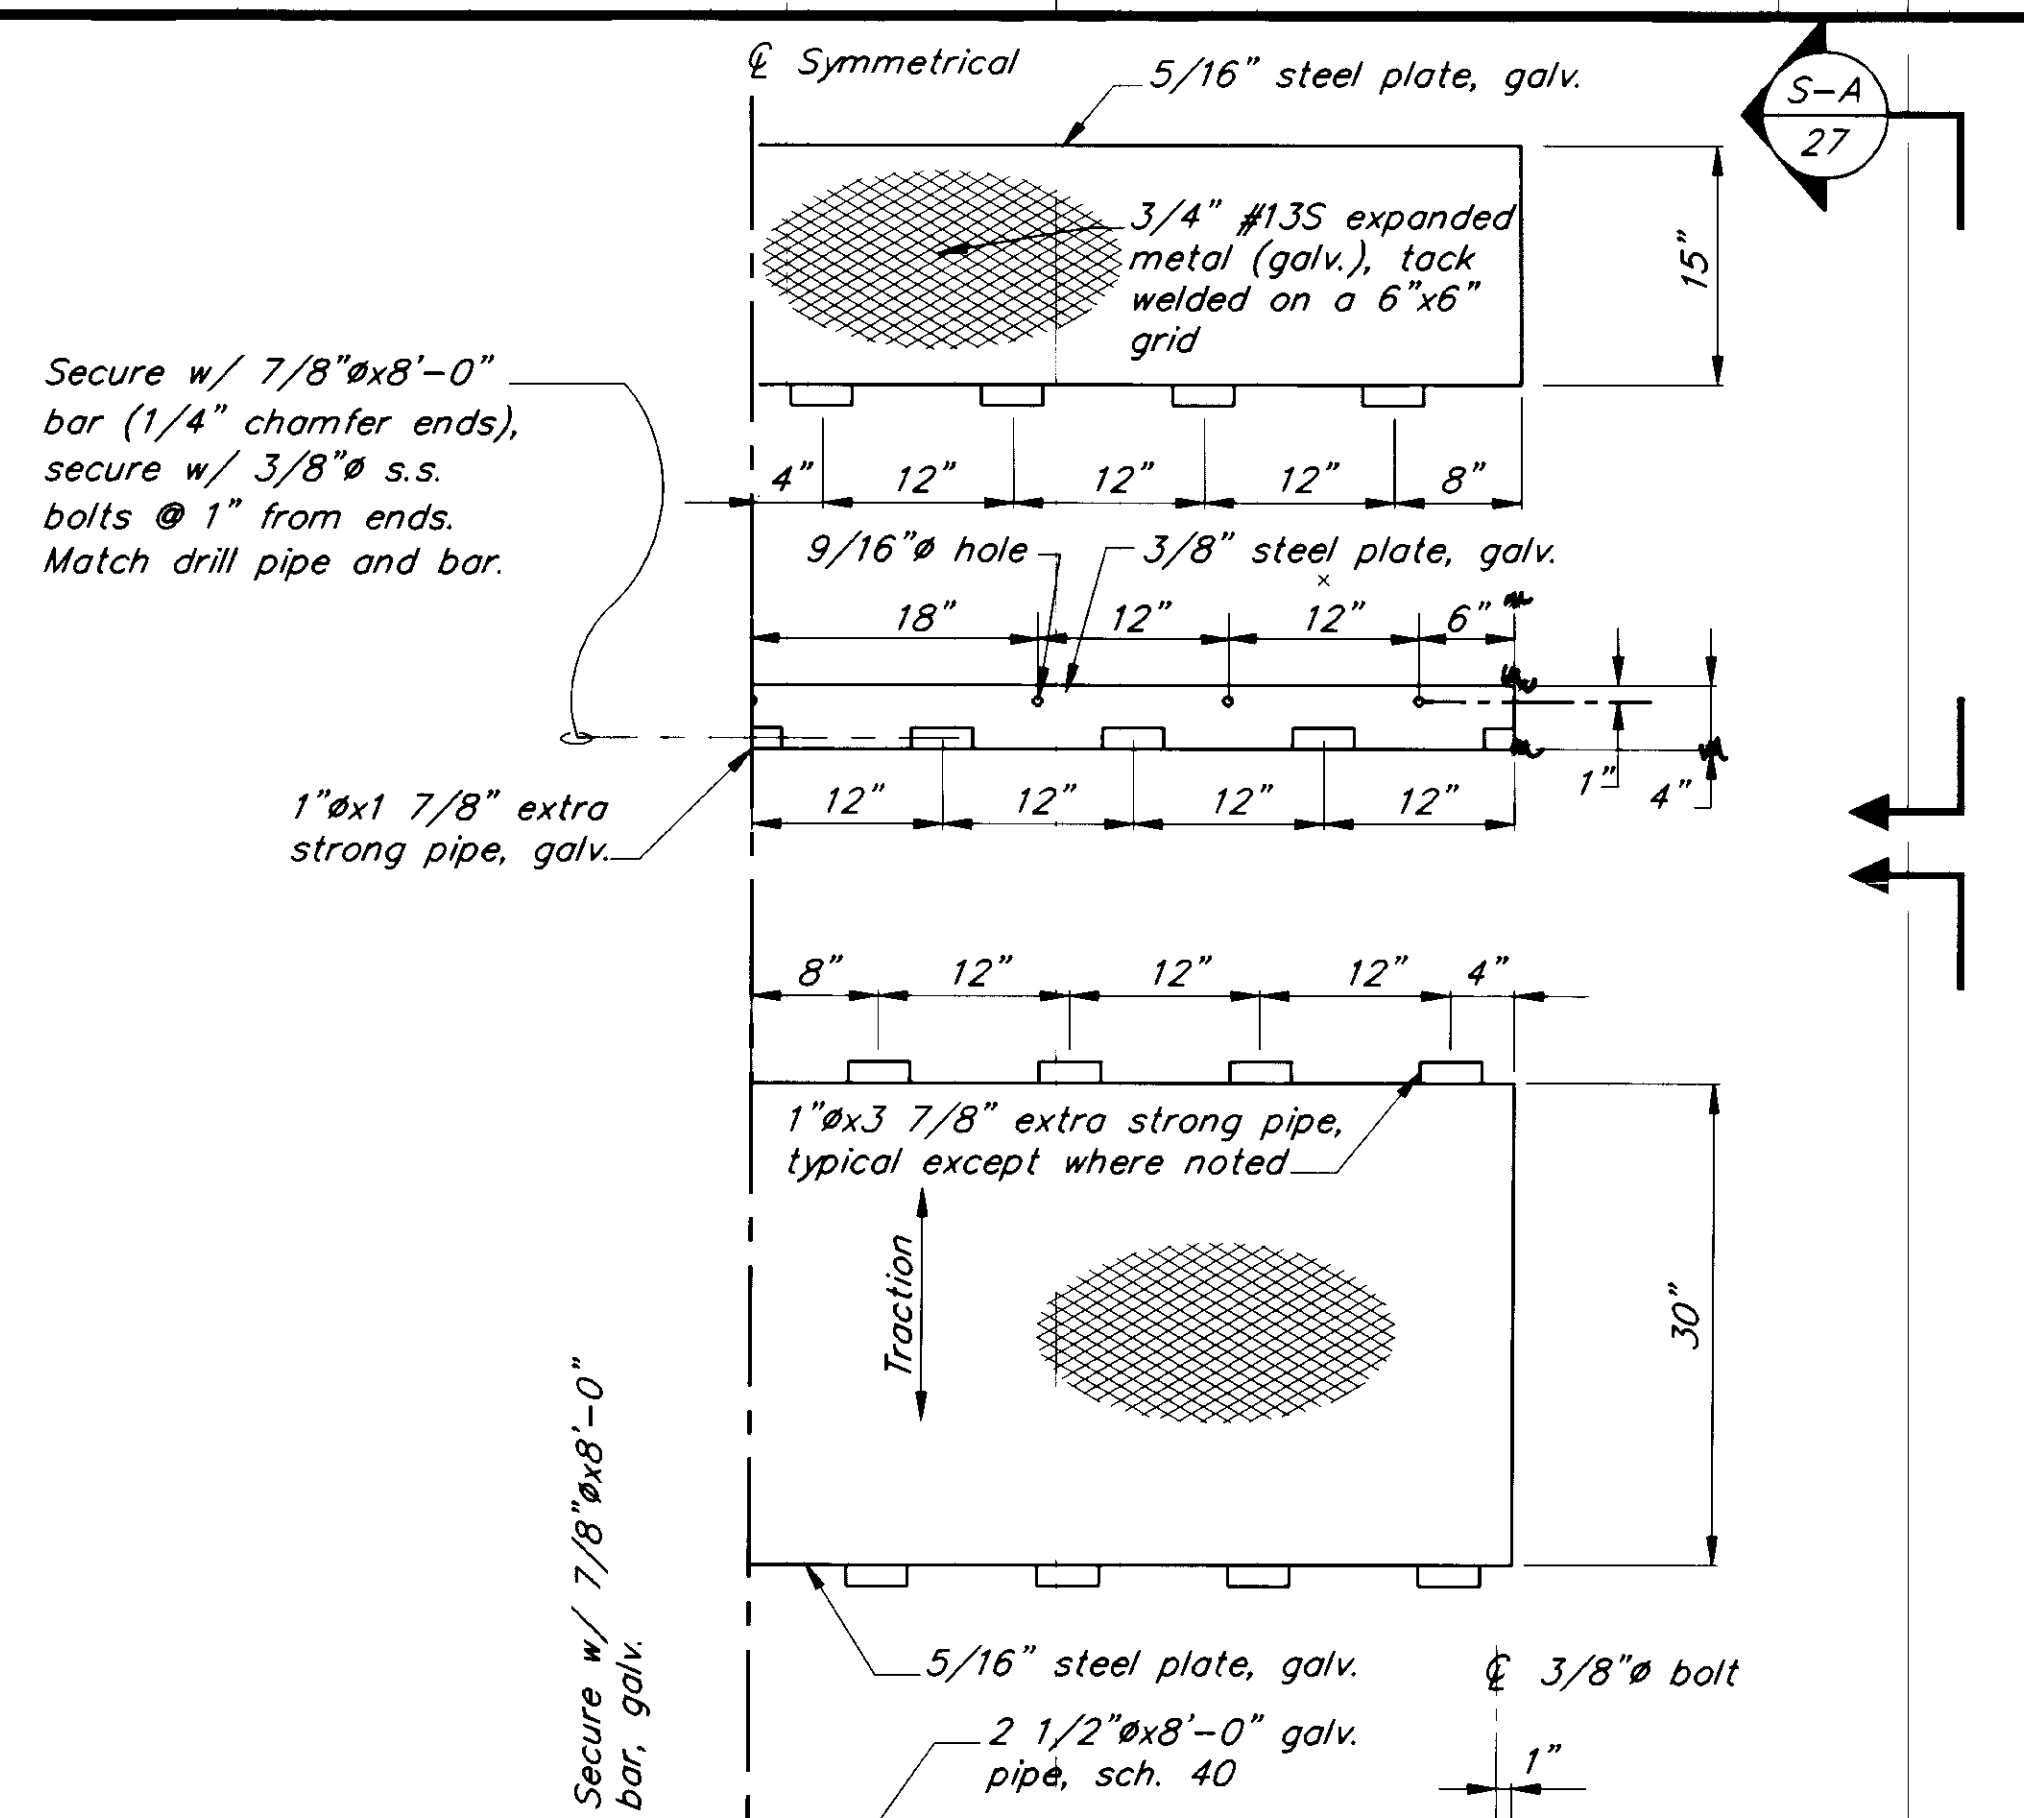 ℄ Symmetrical
5/16" steel plate, galv.
S-A
27
3/4" #13S expanded
metal (galv.), tack
welded on a 6"x6"
grid
15"
Secure w/ 7/8"øx8'-0"
bar (1/4" chamfer ends),
secure w/ 3/8"ø s.s.
bolts @ 1" from ends.
Match drill pipe and bar.
4" 12" 12" 12" 8"
9/16"ø hole
3/8" steel plate, galv.
x
18" 12" 12" 6"
1" 4"
12" 12" 12" 12"
1"øx1 7/8" extra
strong pipe, galv.
8" 12" 12" 12" 4"
1"øx3 7/8" extra strong pipe,
typical except where noted
Traction
30"
Secure w/ 7/8"øx8'-0"
bar, galv.
5/16" steel plate, galv.
℄ 3/8"ø bolt
2 1/2"øx8'-0" galv.
pipe, sch. 40
1"